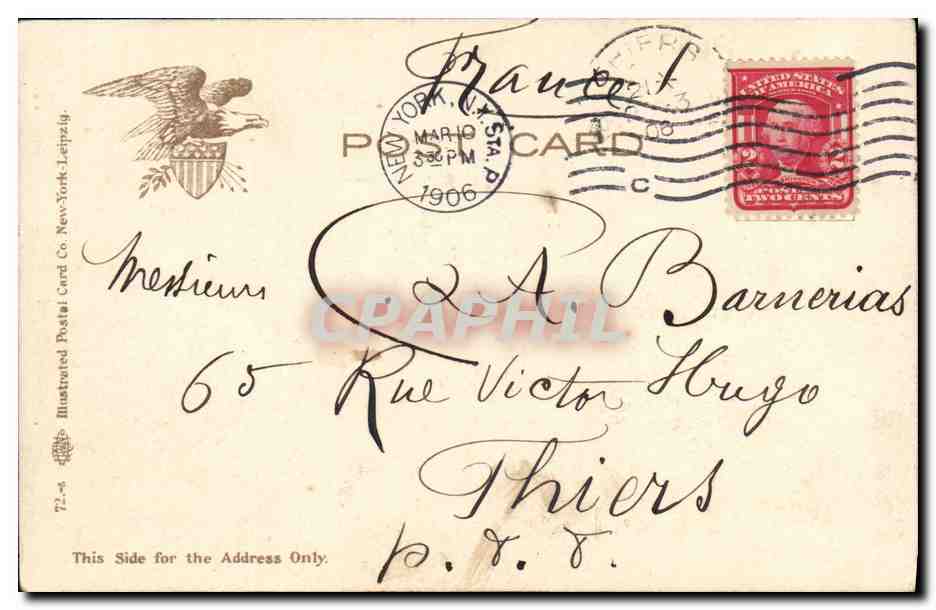 France!
POST CARD
NEW YORK, N.Y. STA. P
MAR 10
3 30 PM
1906
C
UNITED STATES
OF AMERICA
2 2
POSTAGE
TWO CENTS
Messieurs C & A. Barnerias
65 Rue Victor Hugo
Thiers
P. d. d.
CPAPHIL
This Side for the Address Only.
72.-8 Illustrated Postal Card Co. New-York-Leipzig.